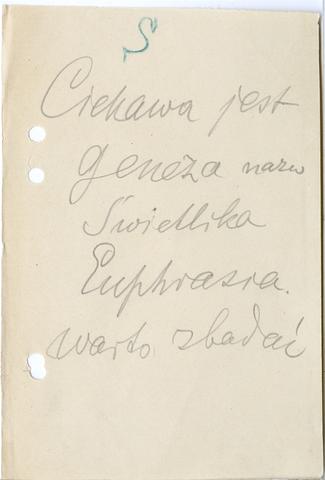 S
Ciekawa jest
geneza nazw
Świetlika
Euphrasia.
warto zbadać